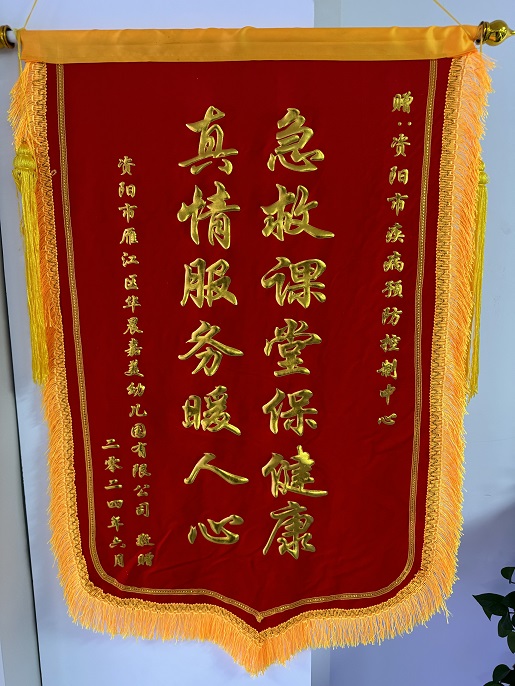 赠：资阳市疾病预防控制中心
急救课堂保健康
真情服务暖人心
资阳市雁江区华晨嘉美幼儿园有限公司 敬赠
二零二四年六月